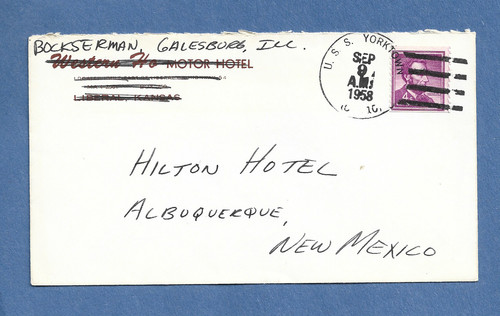 BOCKSERMAN, GALESBURG, ILL.
Western Ho MOTOR HOTEL
LIBERAL, KANSAS
U. S. S. YORKTOWN
SEP
9
A.M.
1958
4¢
HILTON HOTEL
ALBUQUERQUE,
NEW MEXICO